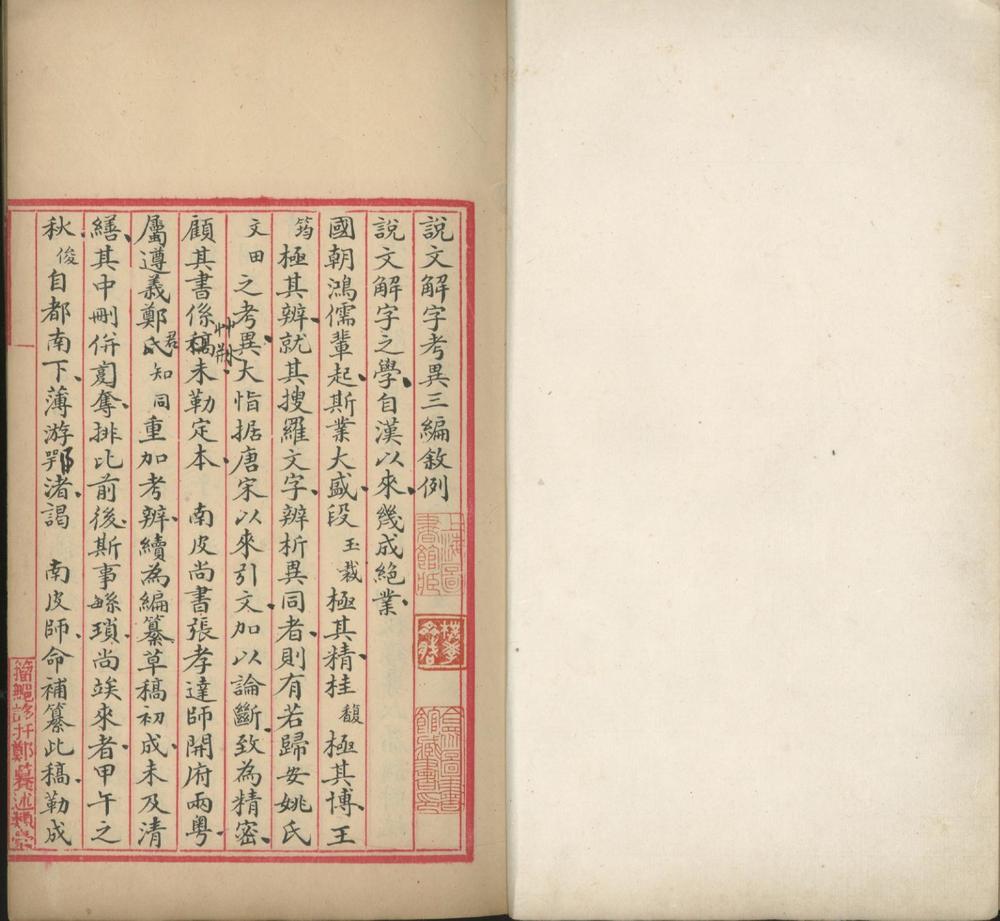 說文解字考異三編敘例
說文解字之學自漢以來幾成絕業
國朝鴻儒輩起斯業大盛段玉裁極其精桂馥極其博王
筠極其辨就其搜羅文字辨析異同者則有若歸安姚氏
文田之考異大恉据唐宋以來引文加以論斷致為精密
顧其書係艸剏稿未勒定本 南皮尚書張孝達師開府兩粵
屬遵義鄭氏君知同重加考辨續為編纂草稿初成未及清
繕其中刪併奪排比前後斯事緐瑣尚竢來者甲午之
秋俊自都南下薄游鄂渚謁 南皮師命補纂此稿勒成
上海圖書館藏